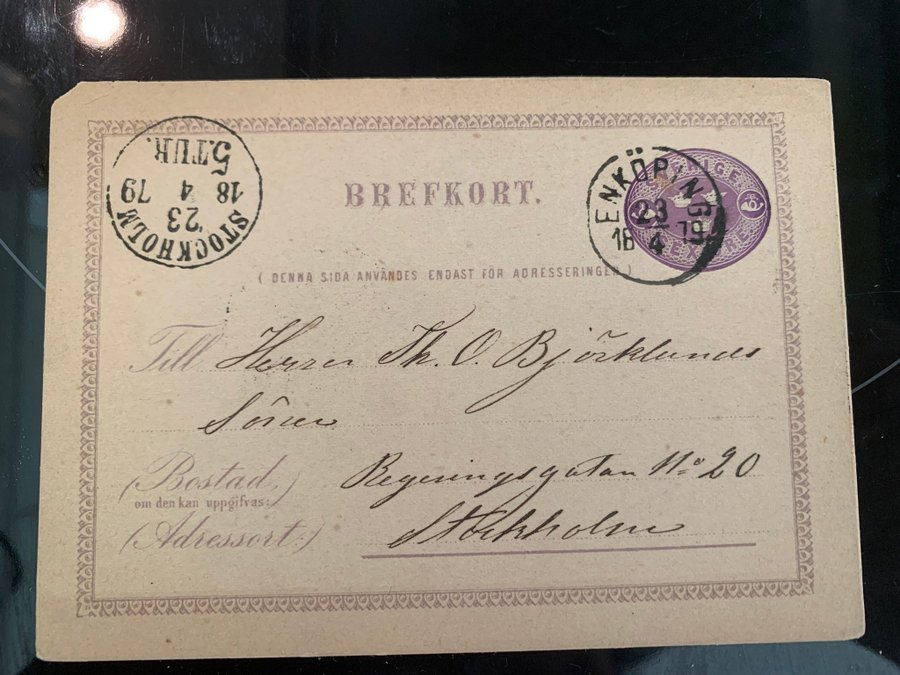 STOCKHOLM
5.TUR.
18 4 79
23
BREFKORT.
ENKÖPING
23
18 4 79
SVERIGE
( DENNA SIDA ANVÄNDES ENDAST FÖR ADRESSERINGEN
Till Herrer Th. O. Björklunds
Söner
(Bostad,)
om den kan uppgifvas:
Regeringsgatan No 20
(Adressort:)
Stockholm